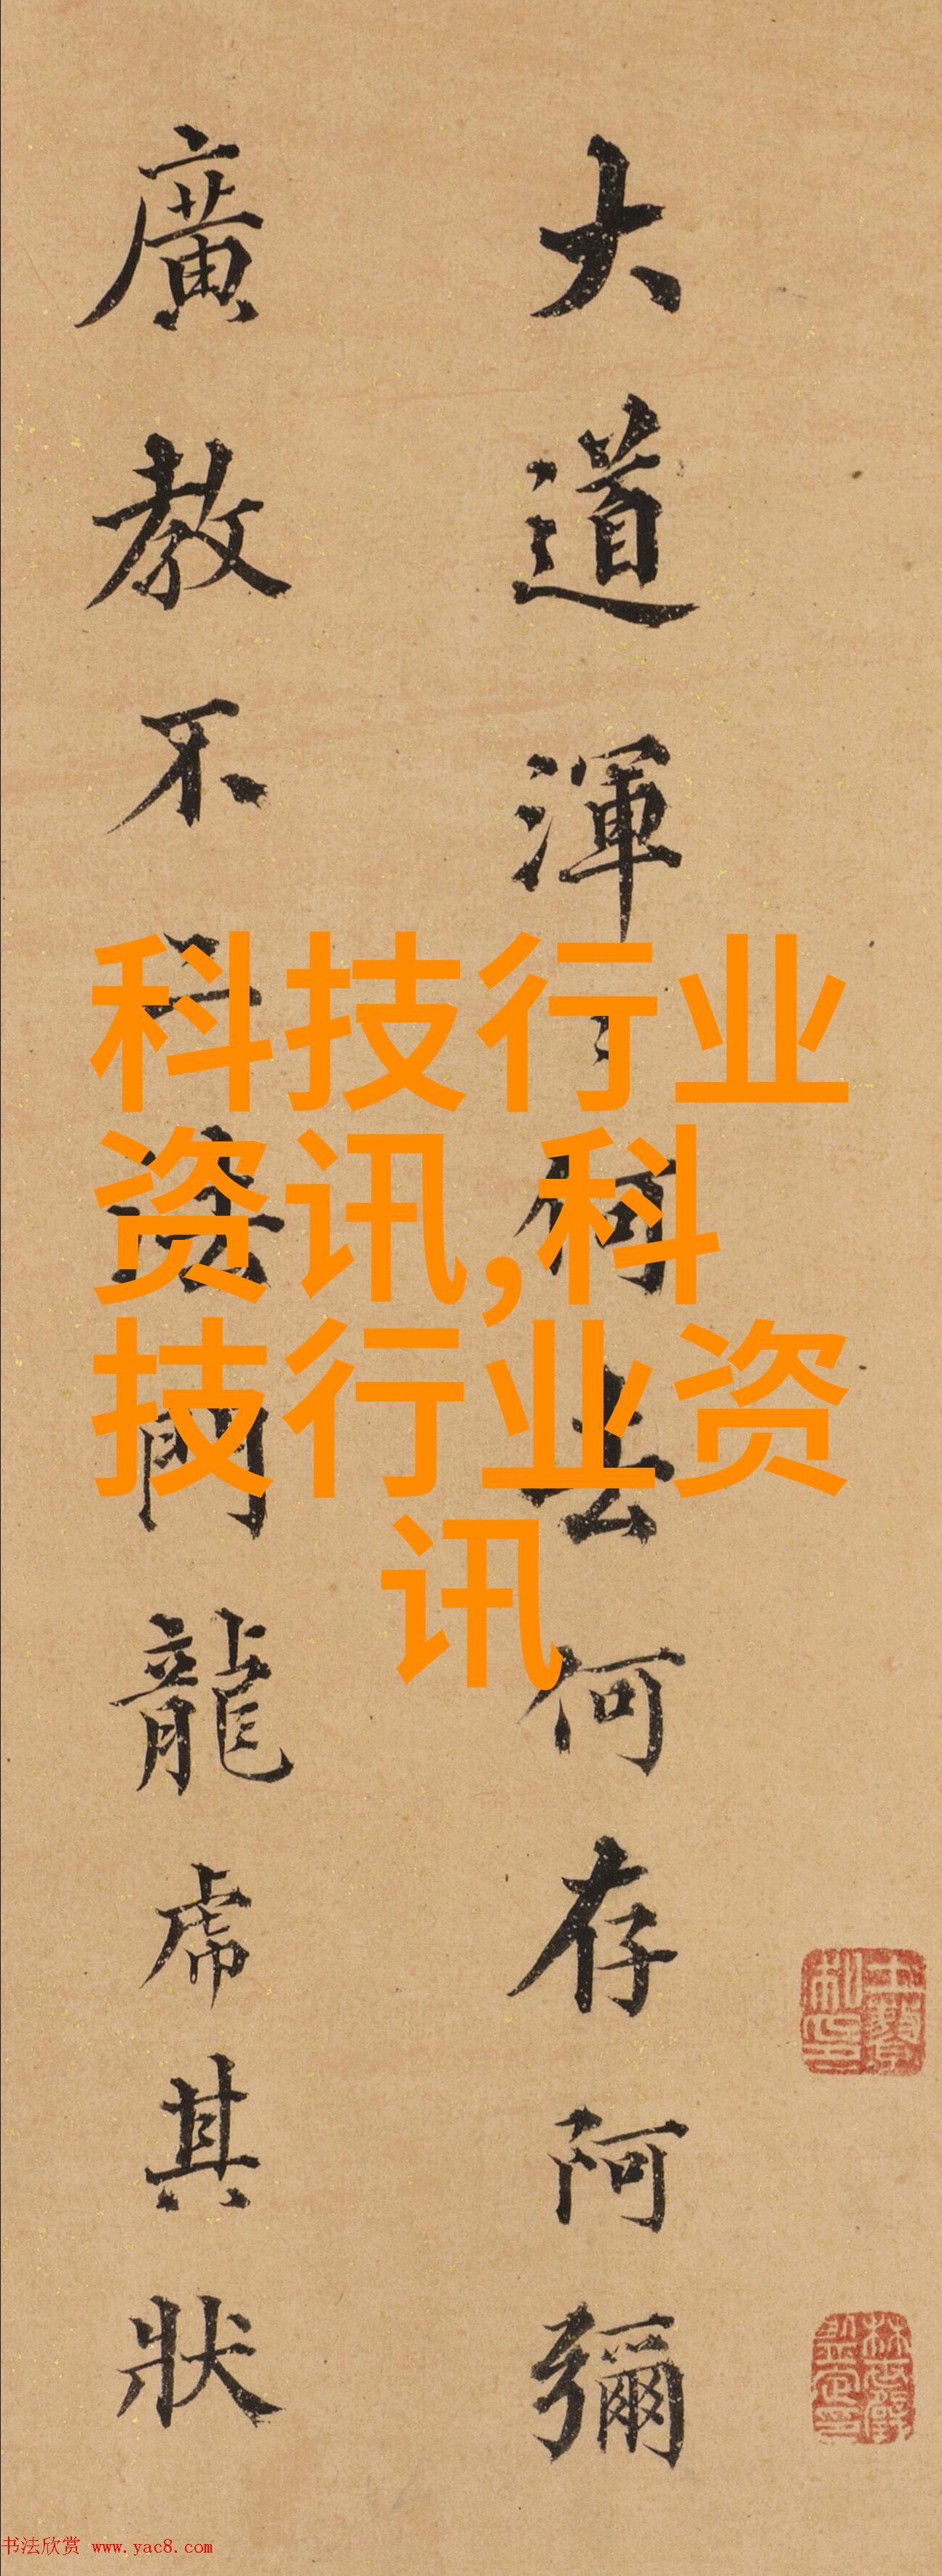 大道渾何去何存阿彌
廣教不二法門龍虎其狀
科技行业
资讯,科
技行业资
讯
书法欣赏 www.yac8.com